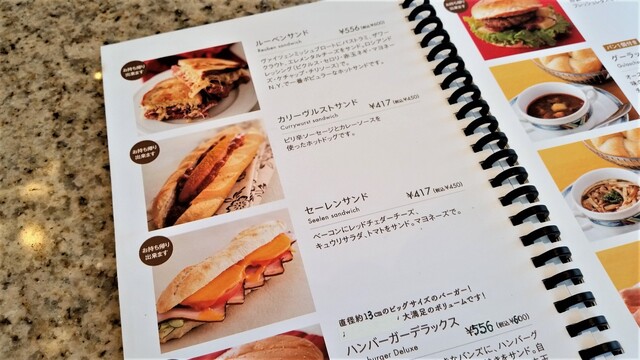 お持ち帰り
出来ます
ルーベンサンド ¥556(税込¥600)
Reuben sandwich
ヴァイツェンミッシュブロートにパストラミ、ザワー
クラウト、エメンタルチーズをサンド。ロシアンド
レッシング(ピクルス・セロリ・赤玉ネギ・マヨネー
ズ・ケチャップ・チリソース)で。
N.Y.で一番ポピュラーなホットサンドです。
お持ち帰り
出来ます
カリーヴルストサンド ¥417(税込¥450)
Currywurst sandwich
ピリ辛ソーセージとカレーソースを
使ったホットドッグです。
お持ち帰り
出来ます
セーレンサンド ¥417(税込¥450)
Seelen sandwich
ベーコンにレッドチェダーチーズ、
キュウリサラダ、トマトをサンド。マヨネーズで。
直径約13cmのビッグサイズのバーガー!
大満足のボリュームです!
ハンバーガーデラックス ¥556(税込¥600)
burger Deluxe
なバンズに、ハンバーグ
をサンド。自
お持ち帰り
出来ます
パン1個付き
グーラッ